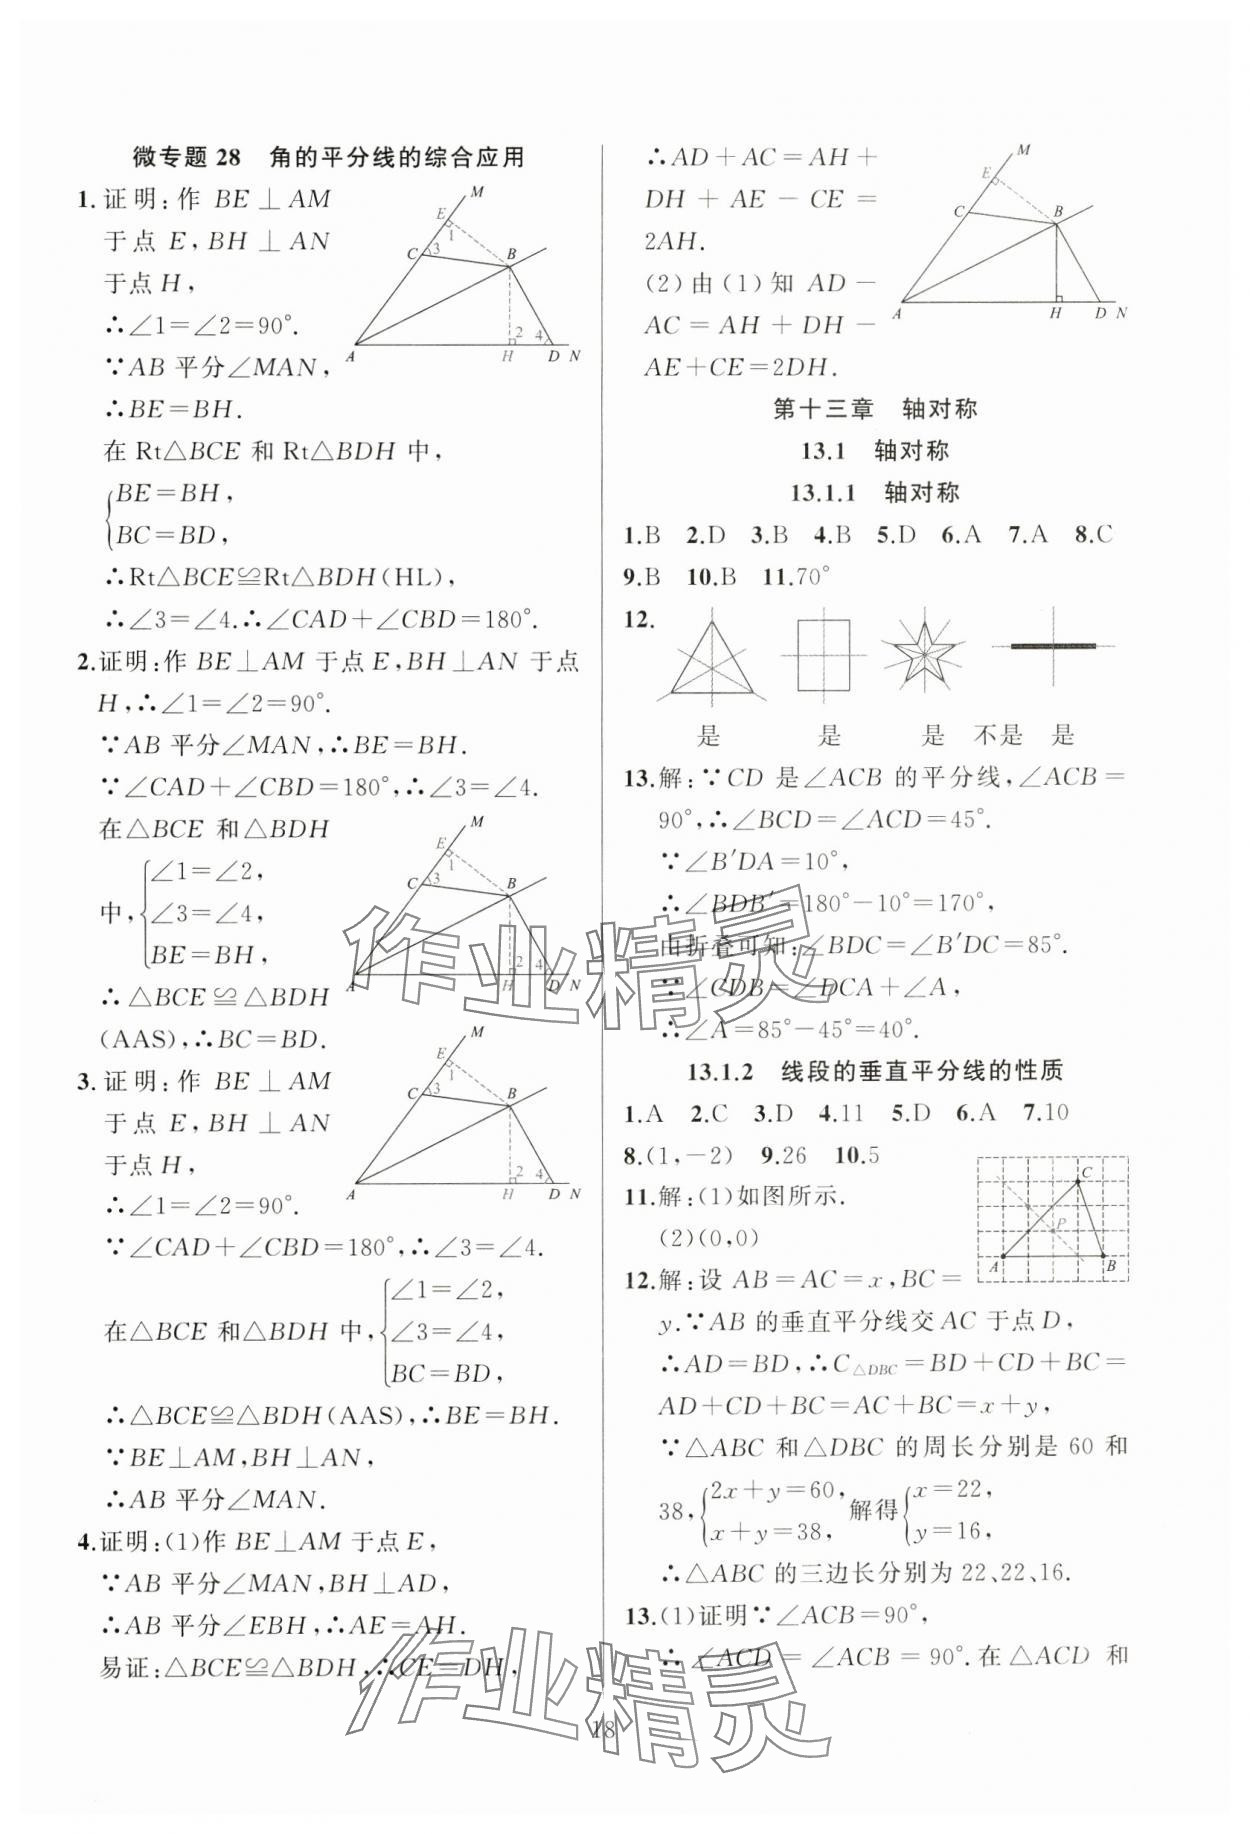 微专题 28 角的平分线的综合应用
1.证明:作 BE⊥AM
于点 E,BH⊥AN
于点 H,
∴∠1=∠2=90°.
∵AB 平分∠MAN,
∴BE=BH.
在 Rt△BCE 和 Rt△BDH 中,
BE=BH,
BC=BD,
∴Rt△BCE≌Rt△BDH(HL),
∴∠3=∠4.∴∠CAD+∠CBD=180°.
M
E
1
C
3
B
2
4
A
H
D
N
2.证明:作 BE⊥AM 于点 E,BH⊥AN 于点
H,∴∠1=∠2=90°.
∵AB 平分∠MAN,∴BE=BH.
∵∠CAD+∠CBD=180°,∴∠3=∠4.
在△BCE 和△BDH
中,
∠1=∠2,
∠3=∠4,
BE=BH,
∴△BCE≌△BDH
(AAS),∴BC=BD.
M
E
1
C
3
B
2
4
A
H
D
N
3.证明:作 BE⊥AM
于点 E,BH⊥AN
于点 H,
∴∠1=∠2=90°.
∵∠CAD+∠CBD=180°,∴∠3=∠4.
在△BCE 和△BDH 中,
∠1=∠2,
∠3=∠4,
BC=BD,
∴△BCE≌△BDH(AAS),∴BE=BH.
∵BE⊥AM,BH⊥AN,
∴AB 平分∠MAN.
M
E
1
C
3
B
2
4
A
H
D
N
4.证明:(1)作 BE⊥AM 于点 E,
∵AB 平分∠MAN,BH⊥AD,
∴AB 平分∠EBH,∴AE=AH.
易证:△BCE≌△BDH,∴CE=DH,
∴AD+AC=AH+
DH+AE-CE=
2AH.
(2)由(1)知 AD-
AC=AH+DH-
AE+CE=2DH.
M
E
C
B
A
H
D
N
第十三章 轴对称
13.1 轴对称
13.1.1 轴对称
1.B 2.D 3.B 4.B 5.D 6.A 7.A 8.C
9.B 10.B 11.70°
12.
是 是 是 不是 是
13.解:∵CD 是∠ACB 的平分线,∠ACB=
90°,∴∠BCD=∠ACD=45°.
∵∠B′DA=10°,
∴∠BDB′=180°-10°=170°,
由折叠可知:∠BDC=∠B′DC=85°.
∵∠CDB=∠DCA+∠A,
∴∠A=85°-45°=40°.
13.1.2 线段的垂直平分线的性质
1.A 2.C 3.D 4.11 5.D 6.A 7.10
8.(1,-2) 9.26 10.5
11.解:(1)如图所示.
(2)(0,0)
C
P
A
B
12.解:设 AB=AC=x,BC=
y.∵AB 的垂直平分线交 AC 于点 D,
∴AD=BD,∴C△DBC=BD+CD+BC=
AD+CD+BC=AC+BC=x+y,
∵△ABC 和△DBC 的周长分别是 60 和
38,
2x+y=60,
x+y=38,
解得
x=22,
y=16,
∴△ABC 的三边长分别为 22、22、16.
13.(1)证明∵∠ACB=90°,
∴∠ACD=∠ACB=90°.在△ACD 和
18
作业精灵
作业精灵